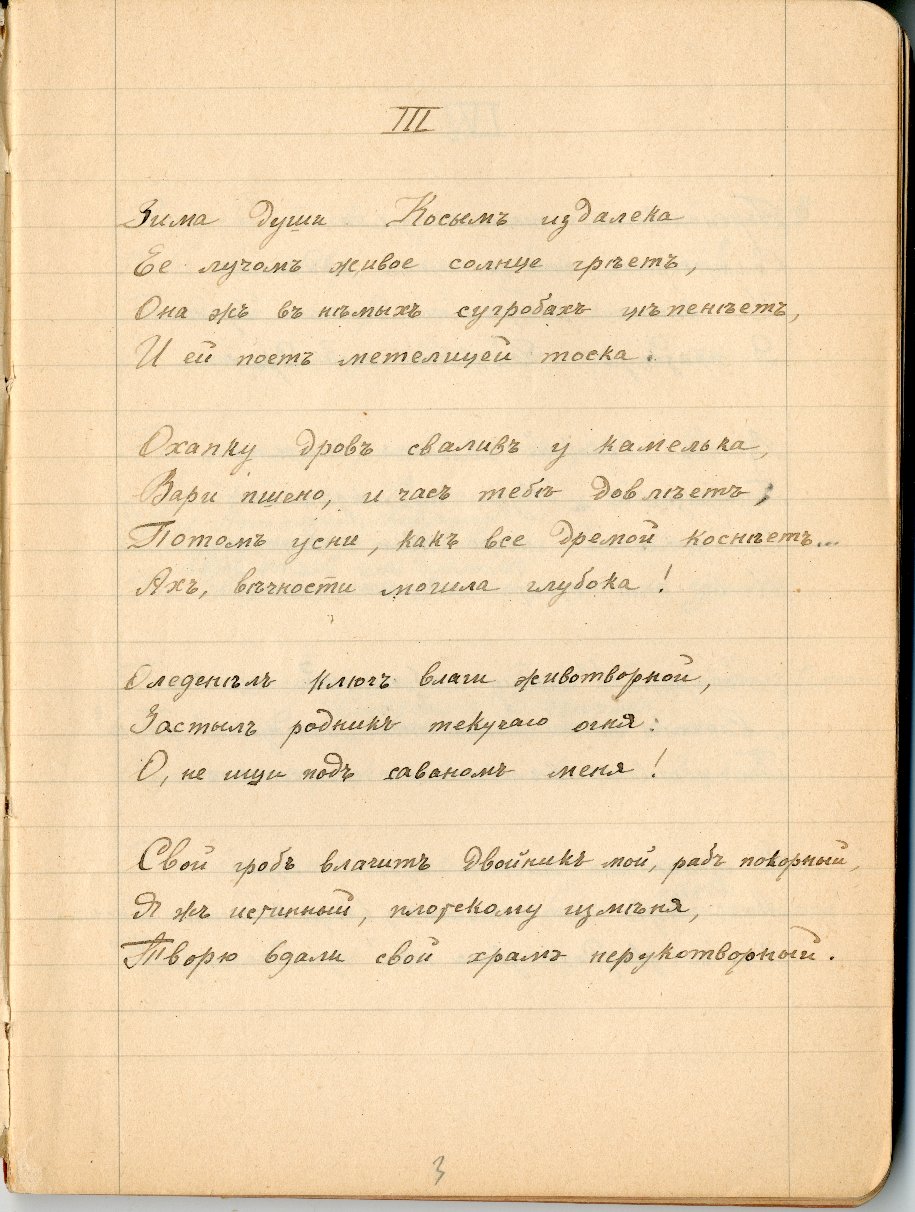 III
Зима души Косымъ издалека
Ее лучомъ живое солнце грѣетъ,
Она жъ въ нѣмыхъ сугробахъ цѣпенѣетъ,
И ей поетъ метелицей тоска.
Охапку дровъ сваливъ у камелька,
Вари пшено, и часъ тебѣ довлѣетъ;
Потомъ усни, какъ все дремой коснѣетъ...
Ахъ, вѣчности могила глубока!
Оледенѣлъ ключъ влаги животворной,
Застылъ родникъ текучаго огня:
О, не ищи подъ саваномъ меня!
Свой гробъ влачитъ двойникъ мой, рабъ покорный,
Я жъ истинный, плотскому измѣня,
Творю вдали свой храмъ нерукотворный.
3